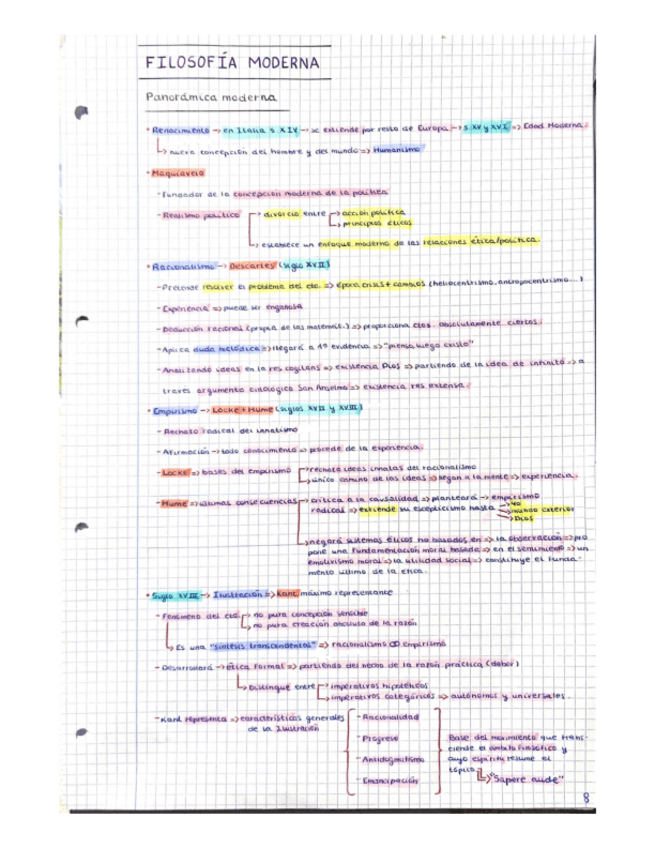 FILOSOFÍA MODERNA
Panorámica moderna
• Renacimiento → en Italia s XIV → se extiende por resto de Europa → s XV y XVI => Edad Moderna.
↳ nueva concepción del hombre y del mundo => Humanismo
• Maquiavelo
- Fundador de la concepción moderna de la política
- Realismo político → divorcio entre → acción política
↳ principios éticos
↳ establece un enfoque moderno de las relaciones ética/política.
• Racionalismo → Descartes (siglo XVII)
- Pretende resolver el problema del cto. => Época crisis + cambios (heliocentrismo, antropocentrismo...)
- Experiencia => puede ser engañosa
- Deducción racional (propia de las matemát.) => proporciona ctos. absolutamente ciertos.
- Aplica duda metódica => llegará a 1º evidencia => "pienso, luego existo"
- Analizando ideas en la res cogitans => existencia Dios => partiendo de la idea de infinito => a
través argumento ontológico San Anselmo => existencia res extensa.
• Empirismo → Locke + Hume (siglos XVII y XVIII)
- Rechazo radical del innatismo
- Afirmación → todo conocimiento => procede de la experiencia.
- Locke => bases del empirismo → rechaza ideas innatas del racionalismo
↳ único camino de las ideas => llegan a la mente => experiencia.
- Hume => últimas consecuencias → crítica a la causalidad => planteará → empirismo
radical => extiende su escepticismo hasta → yo
→ mundo exterior
→ Dios
↳ negará sistemas éticos no basados en => la observación => pro
pone una fundamentación moral basada => en el sentimiento => un
emotivismo moral => la utilidad social => constituye el funda-
mento último de la ética.
• Siglo XVIII → Ilustración => Kant, máximo representante
- Fenómeno del cto. → no pura concepción sensible
↳ no pura creación de la razón
↳ Es una "síntesis transcendental" => racionalismo empirismo
- Desarrollará → ética formal => partiendo del hecho de la razón práctica (deber)
↳ Distingue entre → imperativos hipotéticos
↳ imperativos categóricos => autónomos y universales.
- Kant representa => características generales
de la Ilustración
- Racionalidad
- Progreso
- Antidogmatismo
- Emancipación
Base del movimiento que trans-
ciende el ámbito filosófico y
cuyo espíritu resume el
tópico
↳ "Sapere aude"
8